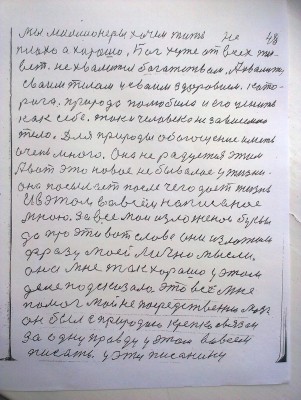 мы милионеры хочем жить не 48
плохо а хорошо. Бог хуже от всех жи
вет. не хвалится богатством. А хвалится
своим телом и своим здоровием. като
рого, природа полюбила и его ценить
как себе. тоже человеко не зависимо
тело. Для природы обогощение иметь
очень много. Она не радуется этим
А вот это новое не бывалое у жизни.
она посылает после чего дает жизнь
И в этом во всем написаное
мною. За все мои изложеное буквы
да про эти вот слова они изложили
фразу моей лично мысли.
она мне так хорошо у этом
деле подсказала это всё мне
помог мой не посредственно мозг
он был с природою крепко связан
за одну правду у этом во всем
писать. у эту писанину